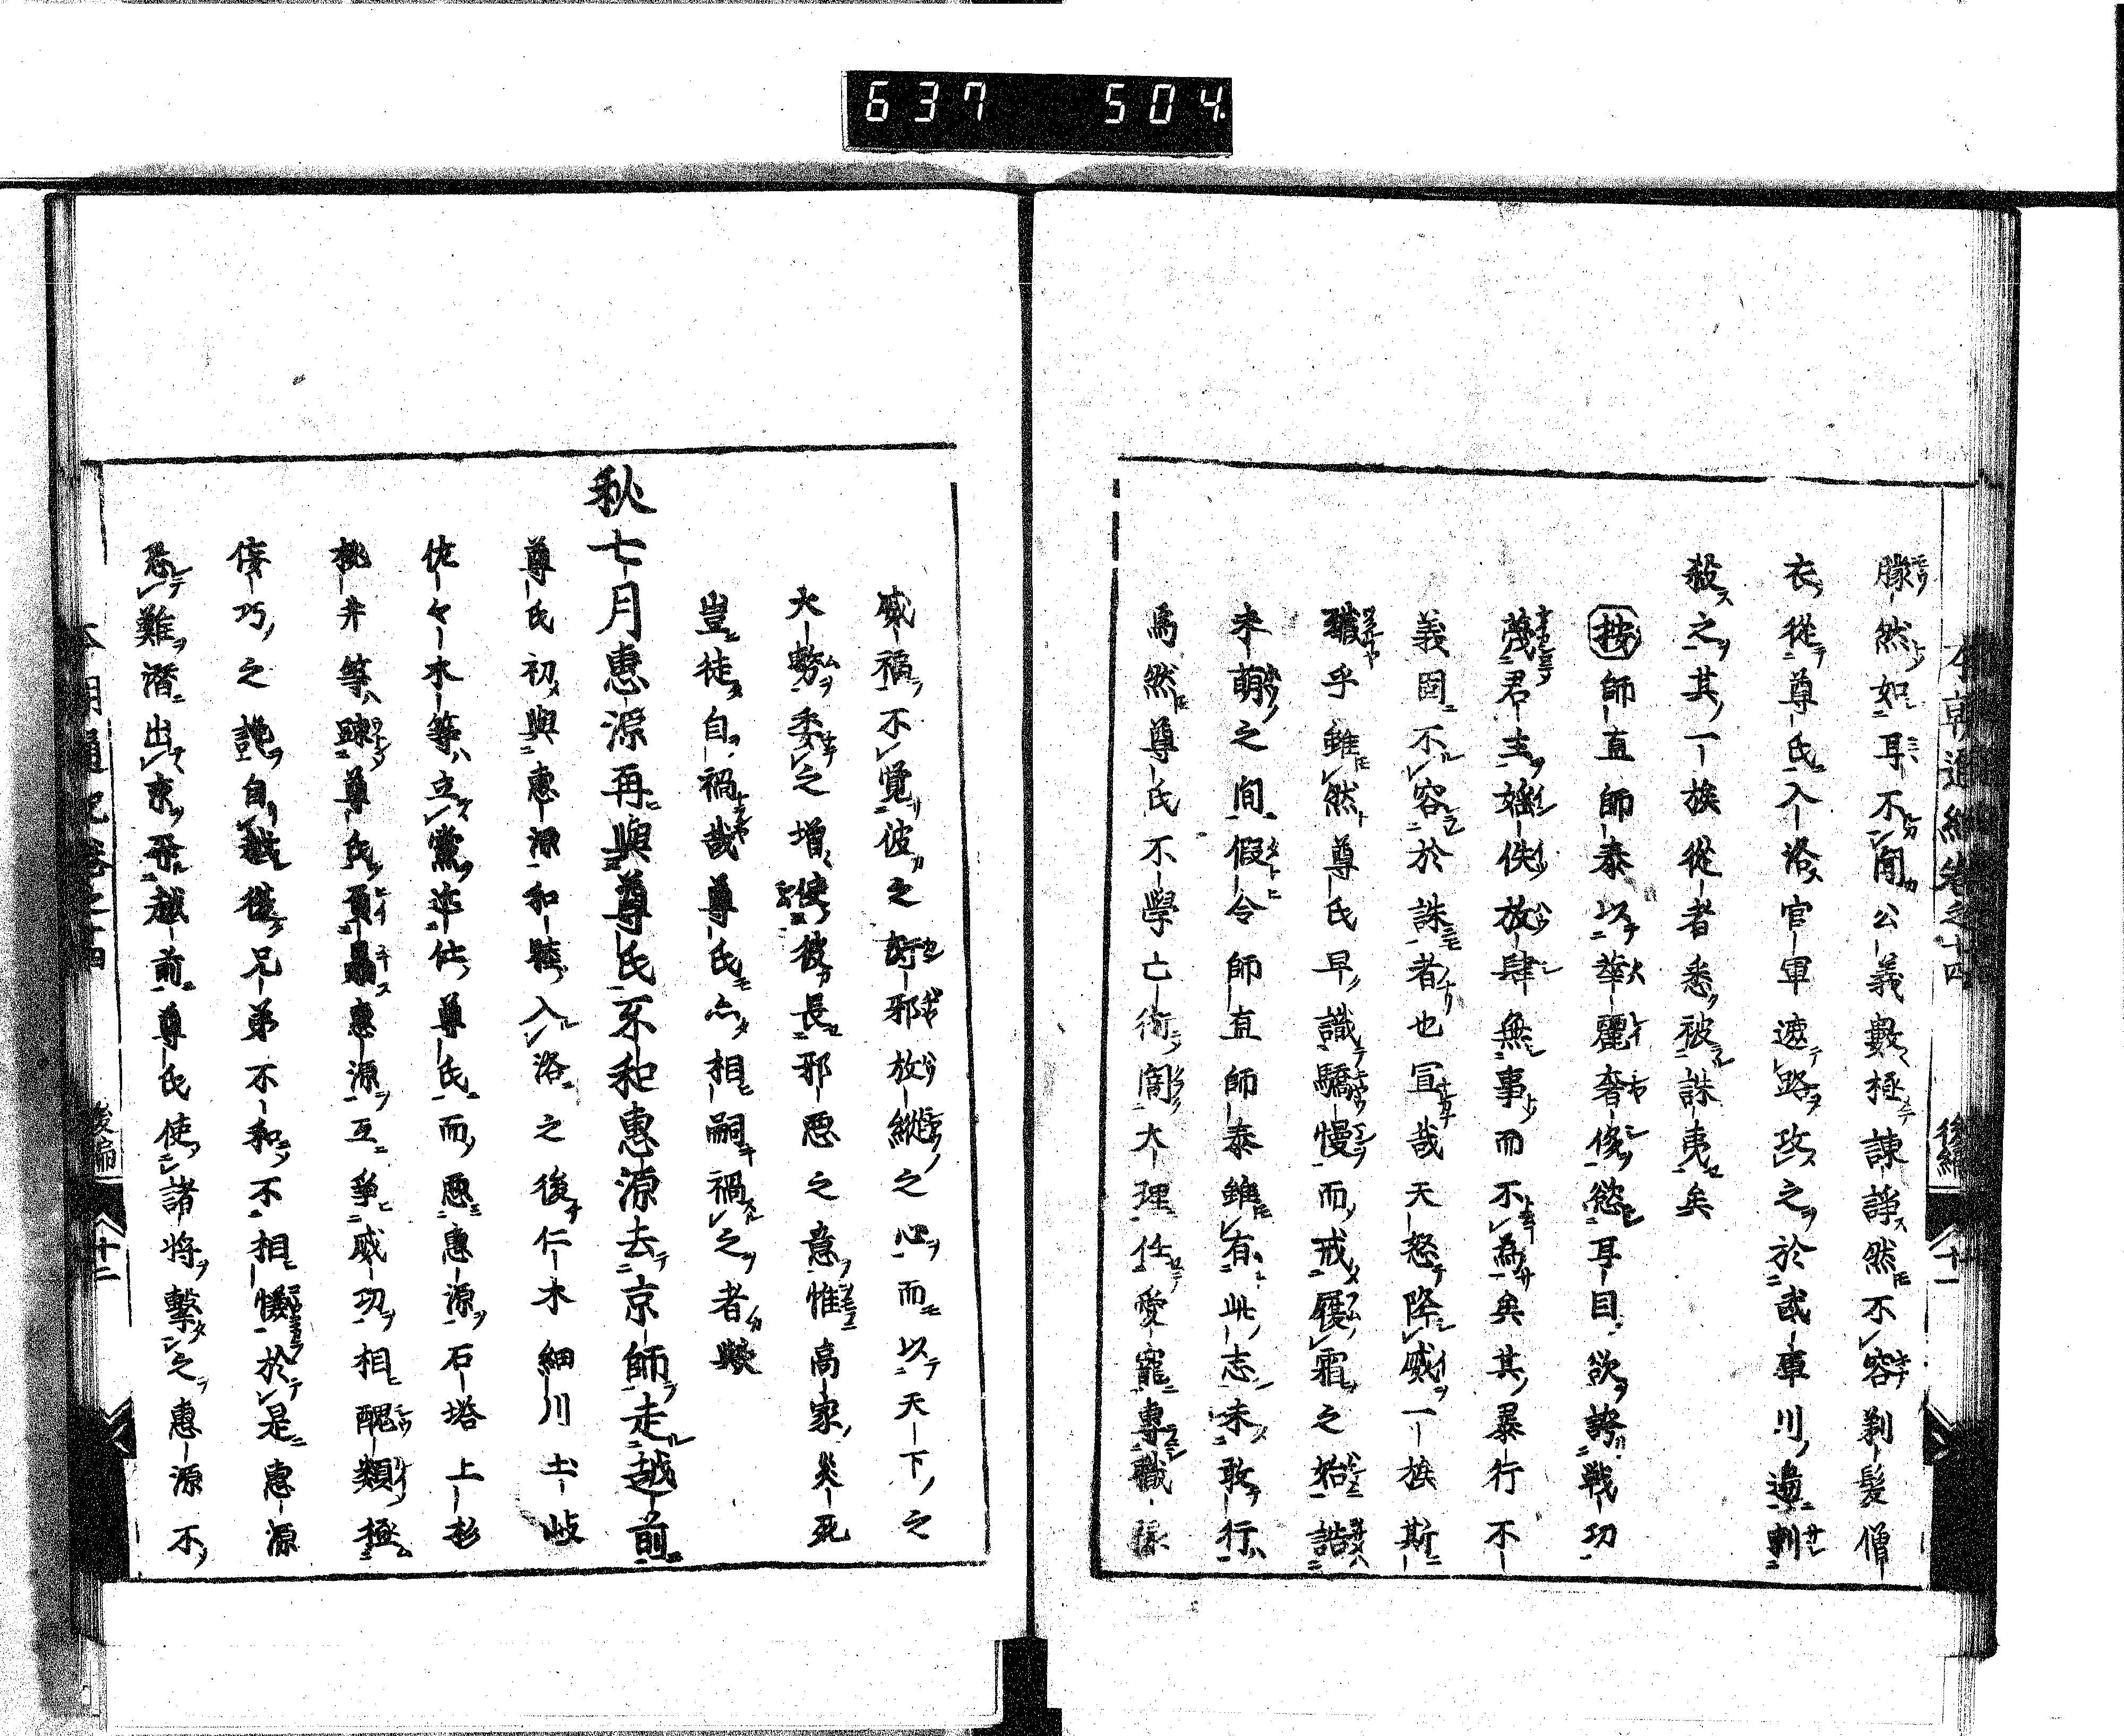 637 504
本朝通紀卷之十四 後編 十一
朦然如耳不聞公義數極諫諍然不容剃髮僧
衣從尊氏入洛官軍遮路攻之於武庫川邊
殺之其一族從者悉被誅夷矣
按師直師泰以華麗奢侈慾耳目欲誇戰功
蔑君主婬佚放肆無事而不為矣其暴行不
義固不容於誅者也宜哉天怒降威一族斯
乎雖然尊氏早識驕慢而戒履霜之始詰
未萌之間假令師直師泰雖有此志未敢行
焉然尊氏不學亡術闇大理任愛寵專職
威福不覺彼之奸邪放縱之心而以天下之
大勢委之增使彼長邪惡之意惟高家炎死
豈徒自禍哉尊氏亦相嗣禍之者歟
秋七月惠源再與尊氏不和惠源去京師走越前
尊氏初與惠源和睦入洛之後仁木細川土岐
佐々木等立黨進佐尊氏而惡惠源石塔上杉
桃井等疎尊氏贔惠源互爭威功相醜類極
倭巧之讒自茲從兄弟不和不相於是惠源
恐難潛出京奔越前尊氏使諸將擊之惠源不
本朝通紀卷之十四 後編 十二